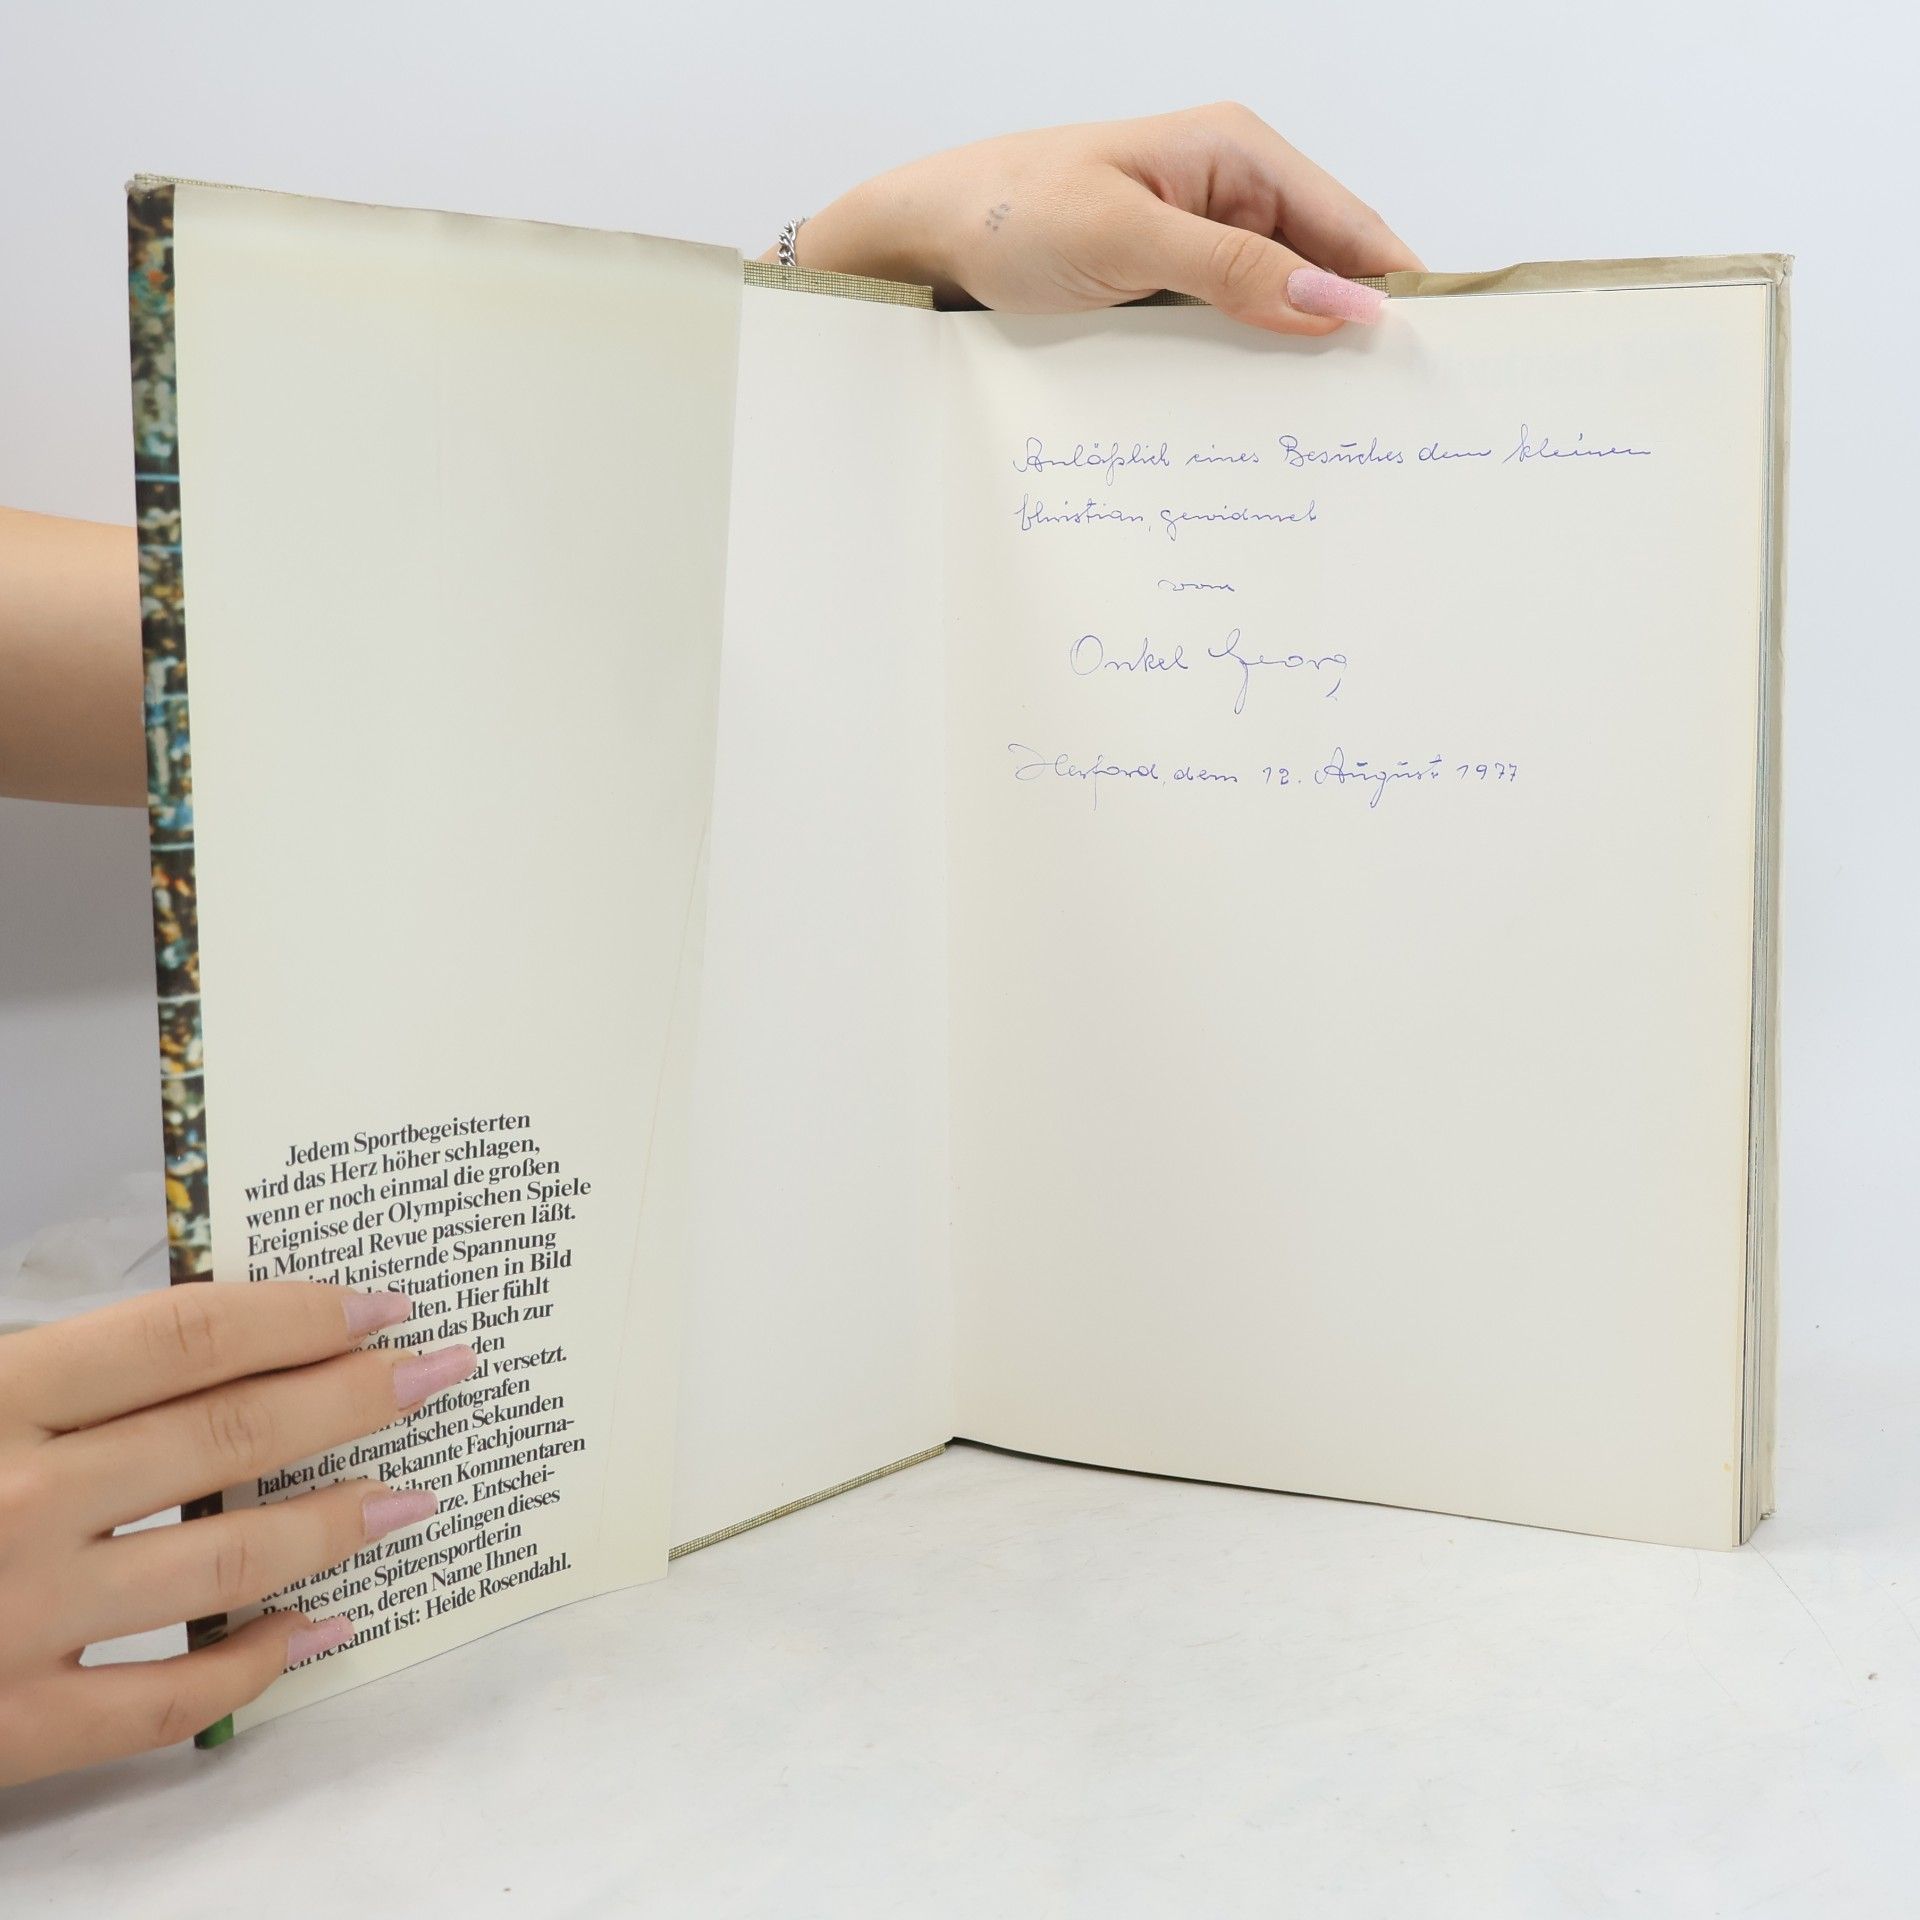 Jedem Sportbegeisterten
wird das Herz höher schlagen,
wenn er noch einmal die großen
Ereignisse der Olympischen Spiele
in Montreal Revue passieren läßt.
knisternde Spannung
Situationen in Bild
Hier fühlt
oft man das Buch zur
den
versetzt.
Sportfotografen
haben die dramatischen Sekunden
Bekannte Fachjourna-
ihren Kommentaren
Entschei-
aber hat zum Gelingen dieses
Buches eine Spitzensportlerin
deren Name Ihnen
bekannt ist: Heide Rosendahl.
Anläßlich eines Besuches dem kleinen
Christian, gewidmet
vom
Onkel Georg
Herford, dem 12. August 1977